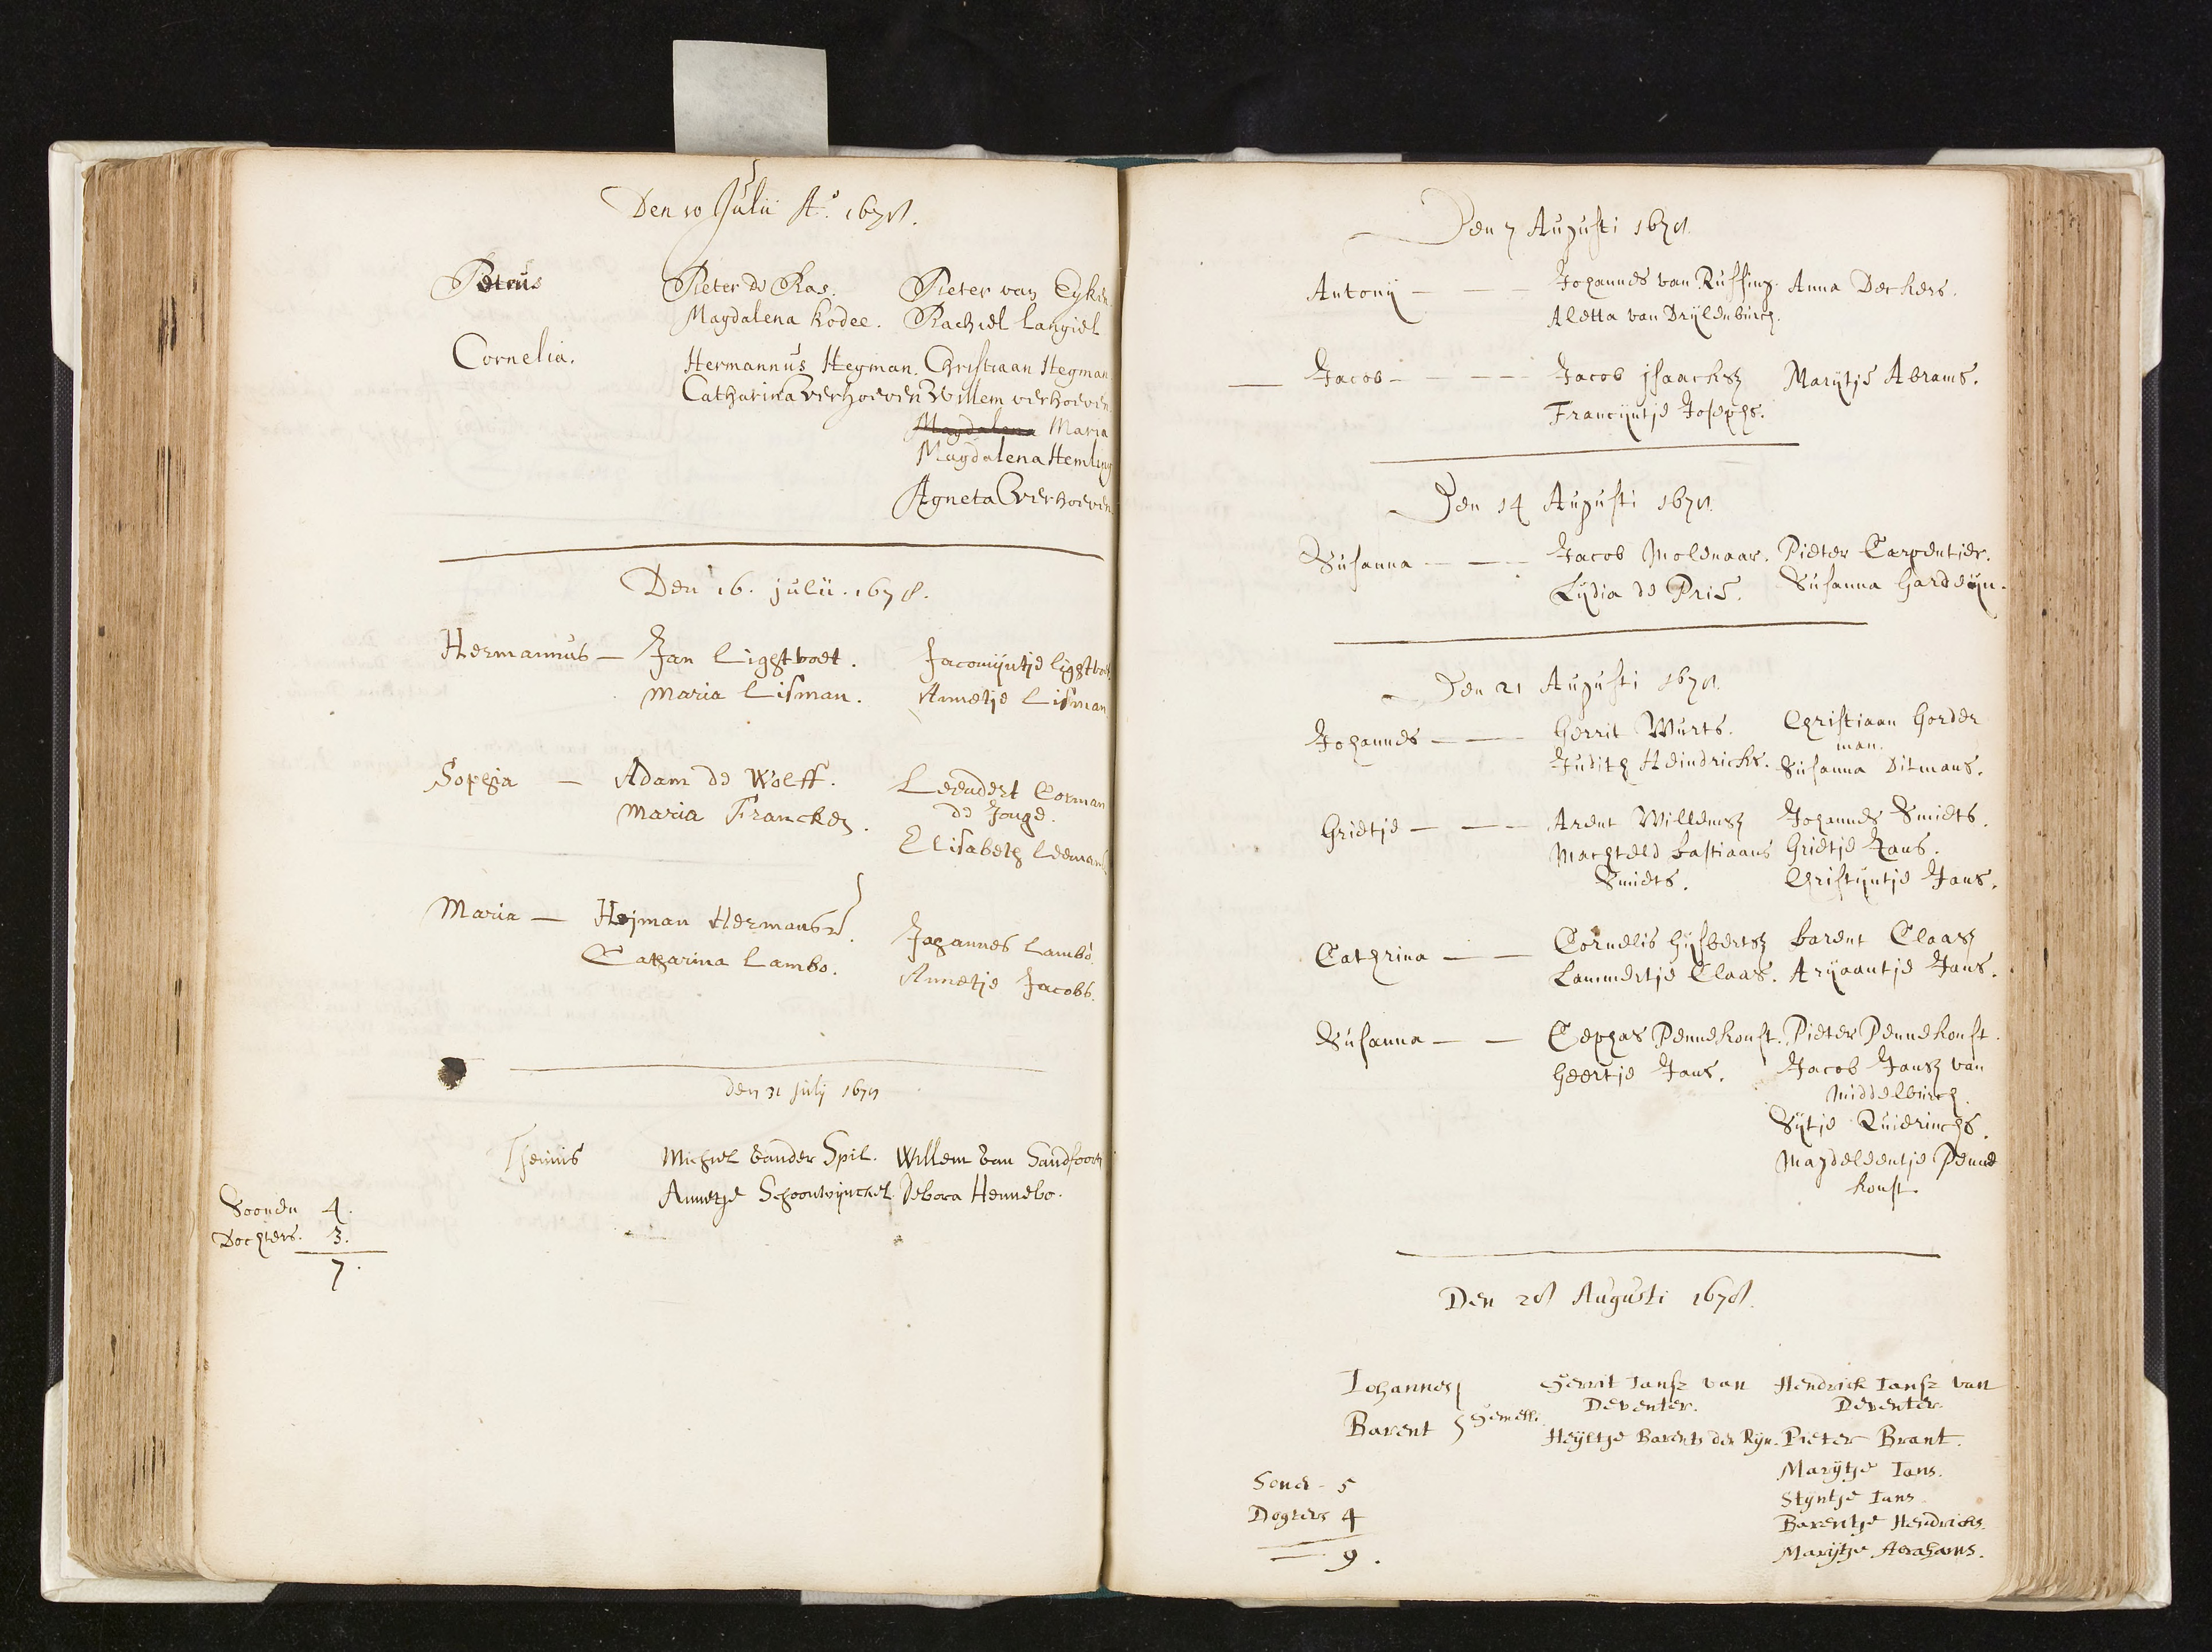 Den 10 Julii A.o 1678.
Petrus Pieter de Ras. Pieter van Eyken
Magdalena Kodee. Rachel Langiel
Cornelia. Hermannus Hegman. Christiaan Hegman
Catharina Verhoeven Willem verhoeven
Magdalena Maria
Magdalena Hemling
Agneta Verhoeven
Den 16. julii. 1678.
Hermannus — Jan Lightvoet. Jacomijntje lightvoet
Maria Lisman. Annetje Lisman
Sophia — Adam de Wolff. Leendert Corman
Maria Francken. de Jonge.
Elisabeth Leemans
Maria — Hejman Hermansz. Johannes Lambo.
Catharina Lambo. Annetje Jacobs.
den 31 julij 1678
Theunis Michiel vander Spil. Willem van Sandfoort
Annetje Schoonwijnckel. Debora Hennebo.
Soonen 4.
Dochters. 3.
7.
Den 7 Augusti 1678.
Antonij — — — Johannes van Russing. Anna Deckers.
Aletta van Drijlenburch.
— Jacob — — — Jacob jsaacksz Marijtje Abrams.
Francijntje Josephs.
Den 14 Augusti 1678.
Susanna — — — Jacob Molenaar. Pieter Carpentier.
Lydia de Prie. Susanna Hardeijn.
Den 21 Augusti 1678.
Johannes — — Gerrit Wurts. Christiaan Gorder
man.
Judith Heindricks. Susanna Ditmans.
Grietje — — — Arent Willemsz Johannes Smidts.
Machteld bastiaans Grietje Jans.
Smidts. Christijntje Jans.
Cathrina — — Cornelis Gijsbertsz barent Claasz
Lammertje Claas. Arijaantje Jans.
Susanna — — Cephas Pennekonst. Pieter Pennekonst.
Geertje Jans. Jacob Jansz van
Middelburch.
Sijtje Quirinchs.
Magdeleentje Penne
konst.
Den 28 Augusti 1678.
Iohannes Gerrit Iansz van Hendrick Iansz van
Deventer. Deventer.
Barent } Gemelli. Heyltje Barents den Rijn. Pieter Brant.
Marijtje Ians.
Stijntje Ians.
Barentje Hendricks.
Marijtje Abrahams.
Sonen - 5
Dogters 4
9.